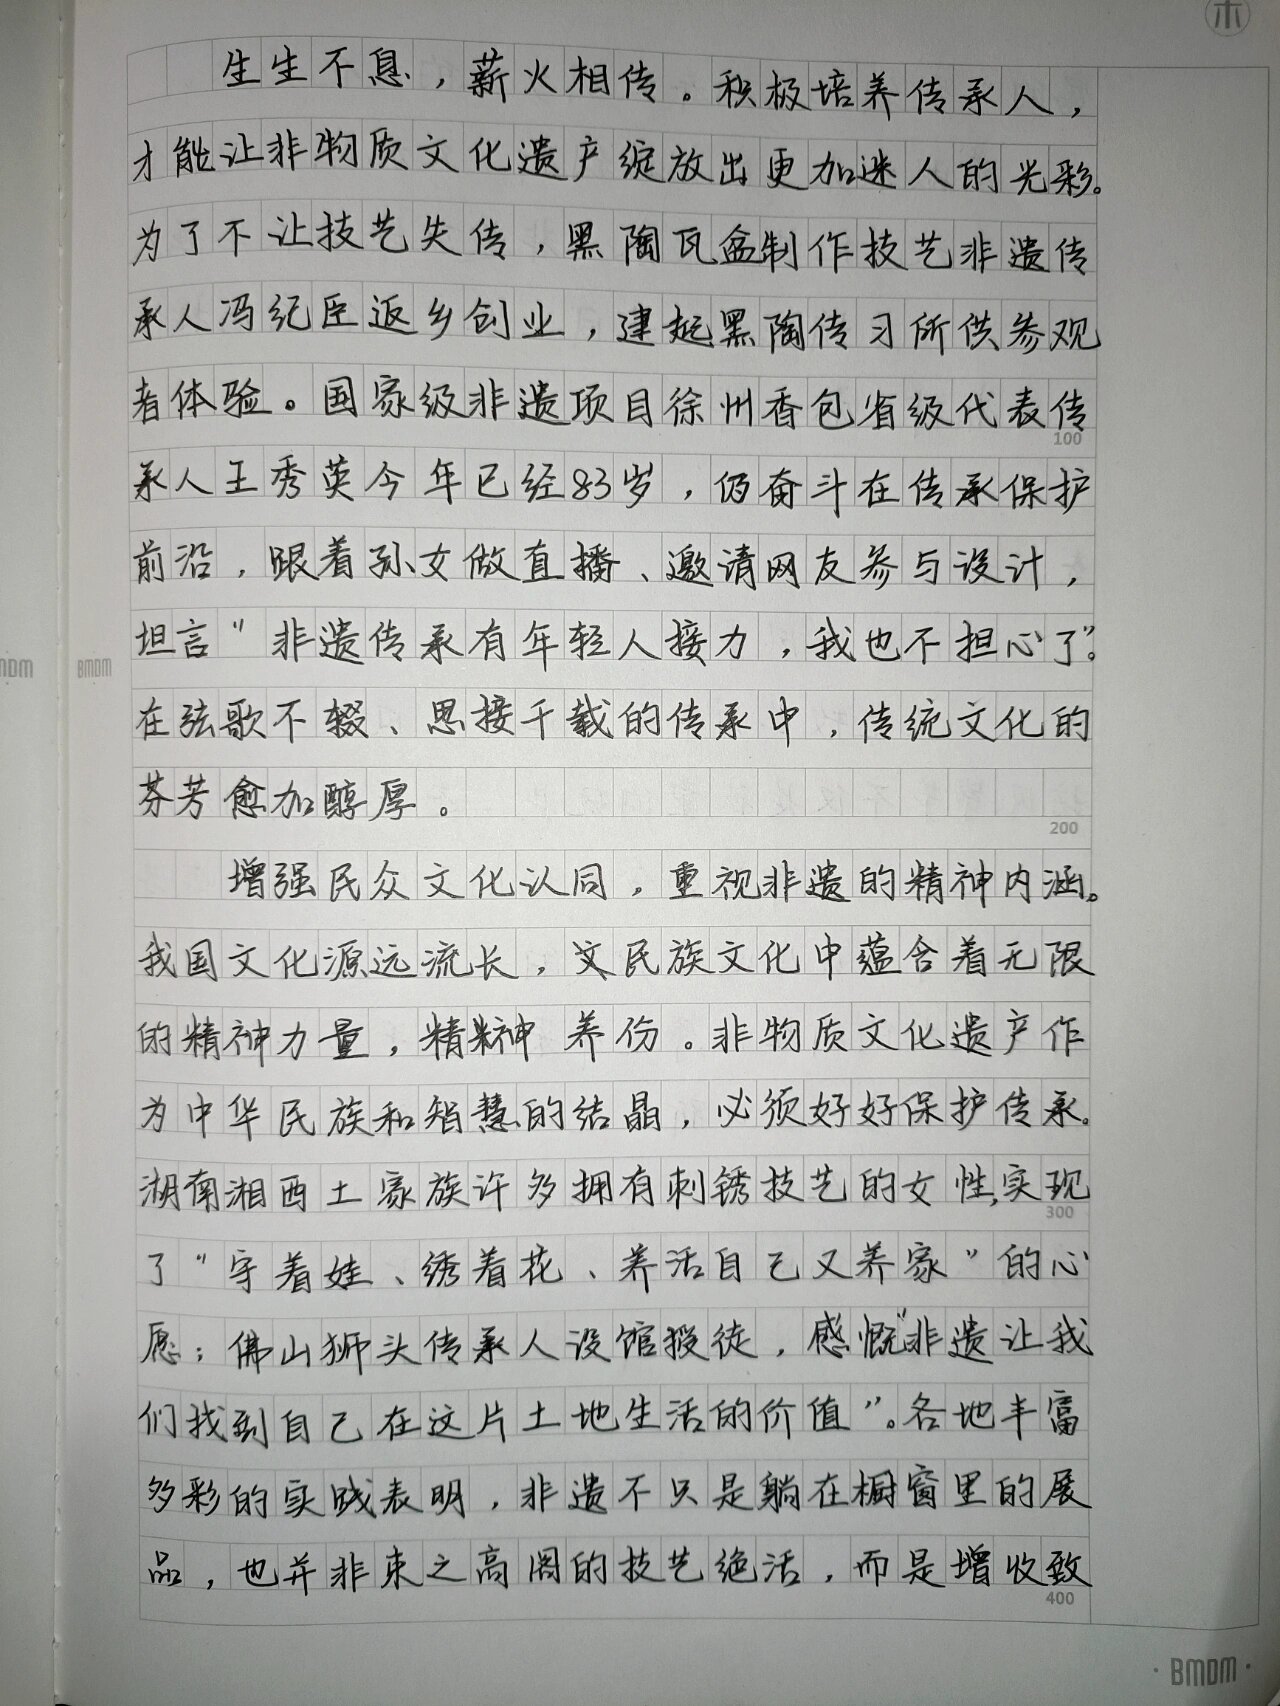 生生不息，薪火相传。积极培养传承人，
才能让非物质文化遗产绽放出更加迷人的光彩。
为了不让技艺失传，黑陶瓦盆制作技艺非遗传
承人冯纪臣返乡创业，建起黑陶传习所供参观
者体验。国家级非遗项目徐州香包省级代表传
100
承人王秀英今年已经83岁，仍奋斗在传承保护
前沿，跟着孙女做直播、邀请网友参与设计，
坦言“非遗传承有年轻人接力，我也不担心了”。
BMDM
在弦歌不辍、思接千载的传承中，传统文化的
芬芳愈加醇厚。
200
增强民众文化认同，重视非遗的精神内涵。
我国文化源远流长，文民族文化中蕴含着无限
的精神力量，精神 养份。非物质文化遗产作
为中华民族和智慧的结晶，必须好好保护传承。
湖南湘西土家族许多拥有刺锈技艺的女性，实现
300
了“守着娃、绣着花、养活自己又养家”的心
愿；佛山狮头传承人设馆授徒，感慨“非遗让我
们找到自己在这片土地生活的价值”。各地丰富
多彩的实践表明，非遗不只是躺在橱窗里的展
品，也并非束之高阁的技艺绝活，而是增收致
400
· BMDM ·